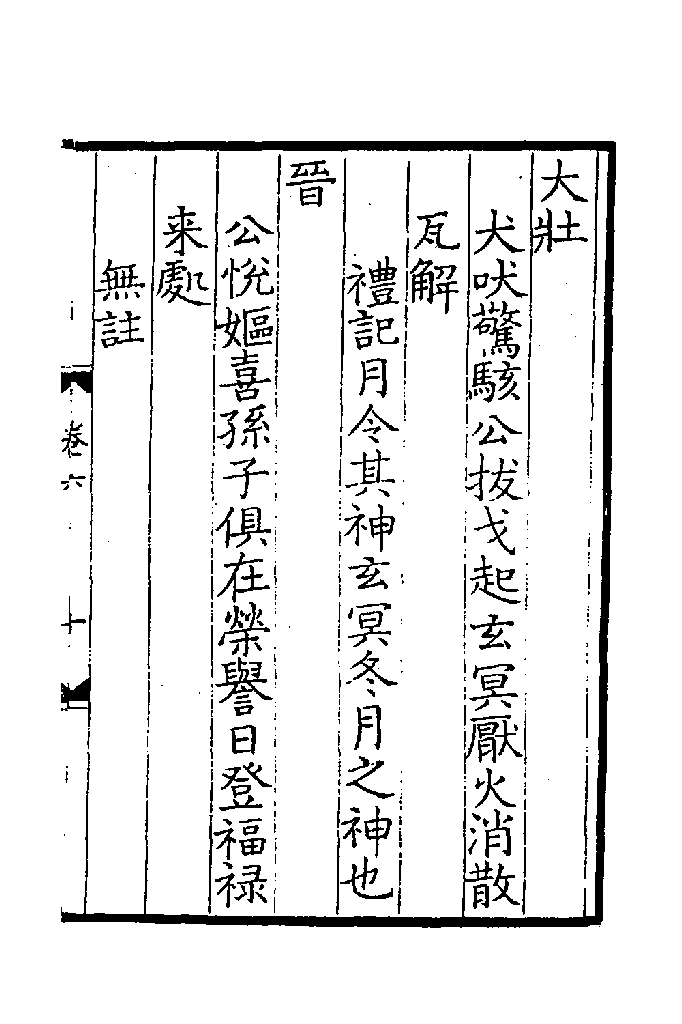 大壯
犬吠驚駭公拔戈起玄冥厭火消散
瓦解
禮記月令其神玄冥冬月之神也
晉
公悅嫗喜孫子俱在榮譽日登福祿
来處
無註
卷六
十